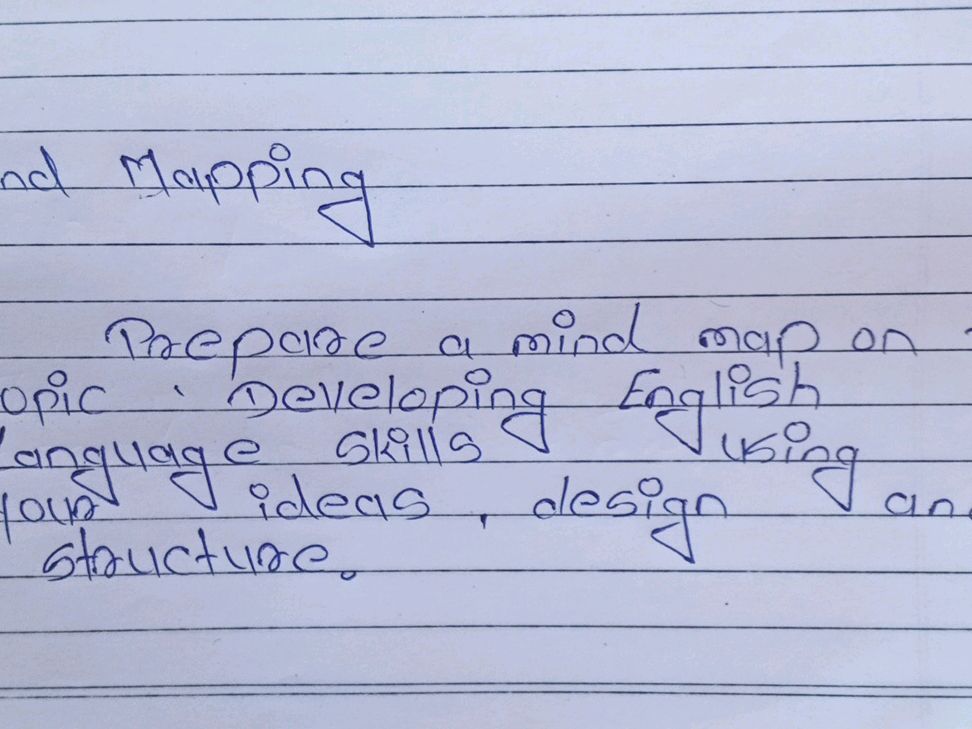 nd Mapping
Prepare a mind map on
opic . Developing English
Language skills using
your ideas , design an
structure.